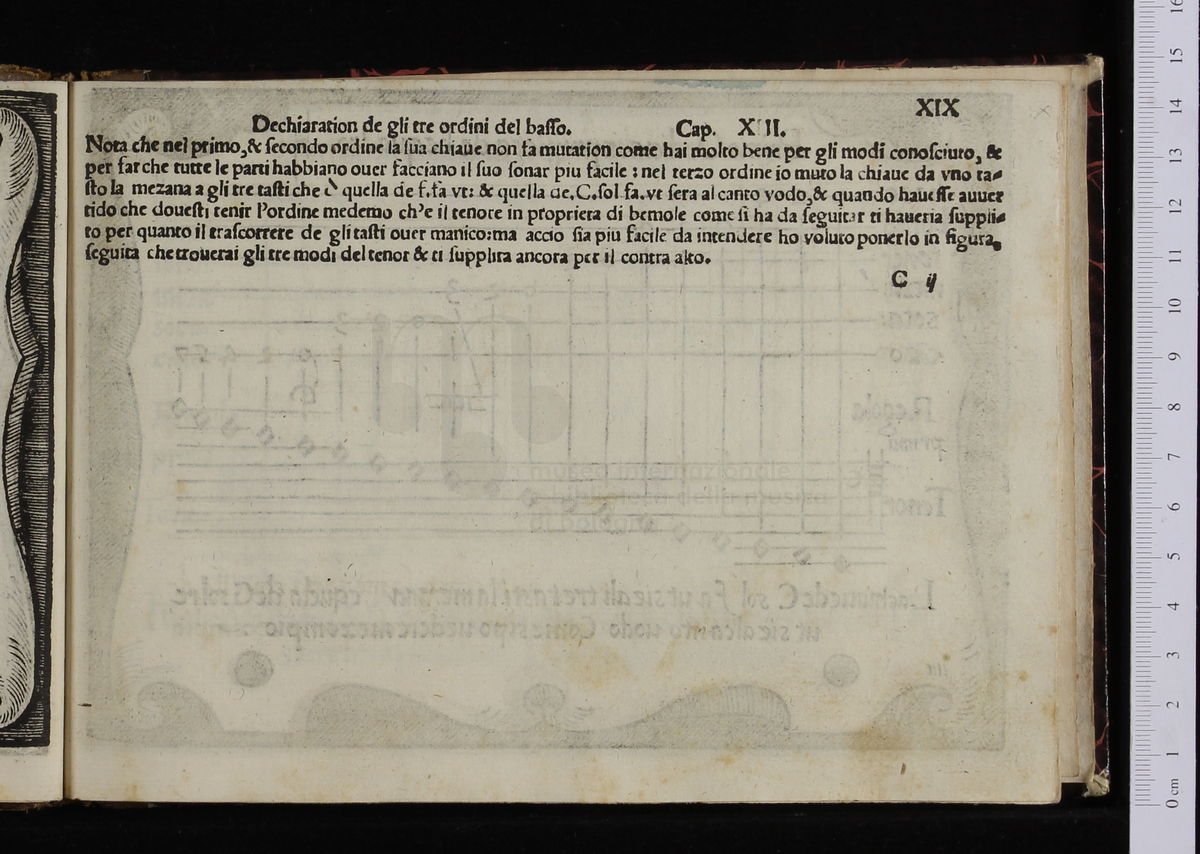 XIX
Dechiaration de gli tre ordini del basso. Cap. XIII.
Nota che nel primo, & secondo ordine la sua chiaue non fa mutation come hai molto bene per gli modi conosciuto, &
per far che tutte le parti habbiano ouer facciano il suo sonar piu facile : nel terzo ordine io muto la chiaue da vno ta-
sto la mezana a gli tre tasti che è quella de f. fa vt: & quella de. C. sol fa. vt sera al canto vodo, & quando hauesse auuer
tido che douesti tenir l'ordine medemo ch'e il tenore in propriera di bemole come si ha da seguitar ti haueria supplii-
to per quanto il trascorrere de gli tasti ouer manico: ma accio sia piu facile da intendere ho voluto ponerlo in figura,
seguita che trouerai gli tre modi del tenor & ti supplira ancora per il contra alto.
C ij
museo internazionale
e biblioteca della musica
di bologna
0 cm 1 2 3 4 5 6 7 8 9 10 11 12 13 14 15 16